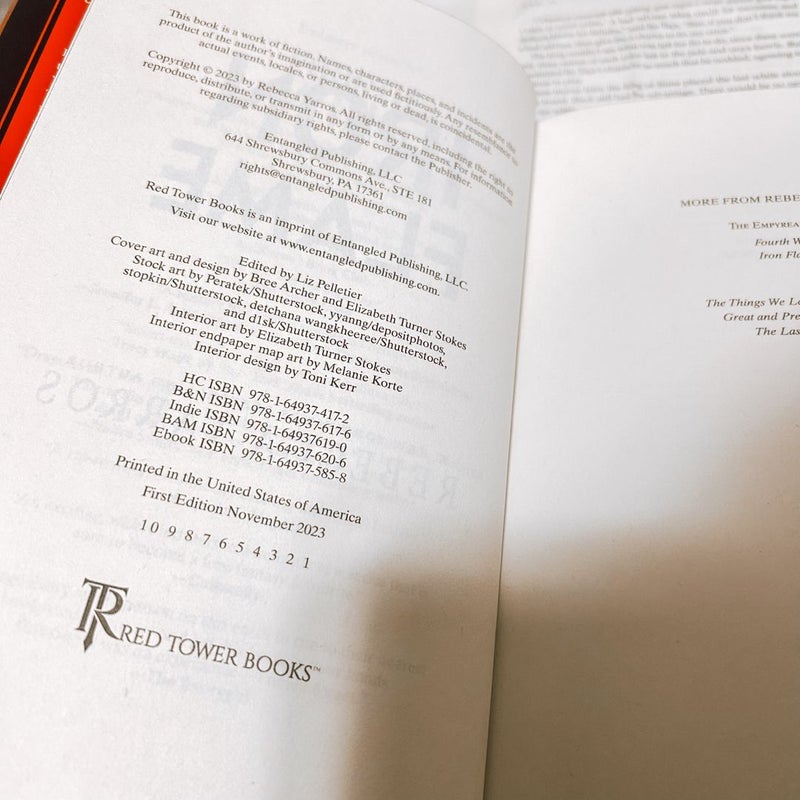 This book is a work of fiction. Names, characters, places, and incidents are the
product of the author's imagination or are used fictitiously. Any resemblance to
actual events, locales, or persons, living or dead, is coincidental.
Copyright © 2023 by Rebecca Yarros. All rights reserved, including the right to
reproduce, distribute, or transmit in any form or by any means. For information
regarding subsidiary rights, please contact the Publisher.
Entangled Publishing, LLC
644 Shrewsbury Commons Ave., STE 181
Shrewsbury, PA 17361
rights@entangledpublishing.com
Red Tower Books is an imprint of Entangled Publishing, LLC.
Visit our website at www.entangledpublishing.com.
Edited by Liz Pelletier
Cover art and design by Bree Archer and Elizabeth Turner Stokes
Stock art by Peratek/Shutterstock, yyanng/depositphotos,
stopkin/Shutterstock, detchana wangkheeree/Shutterstock,
and d1sk/Shutterstock
Interior art by Elizabeth Turner Stokes
Interior endpaper map art by Melanie Korte
Interior design by Toni Kerr
HC ISBN 978-1-64937-417-2
B&N ISBN 978-1-64937-617-6
Indie ISBN 978-1-64937619-0
BAM ISBN 978-1-64937-620-6
Ebook ISBN 978-1-64937-585-8
Printed in the United States of America
First Edition November 2023
10 9 8 7 6 5 4 3 2 1
RED TOWER BOOKS™
MORE FROM REBE
THE EMPYREA
Fourth W
Iron Fla
The Things We Le
Great and Pre
The Las